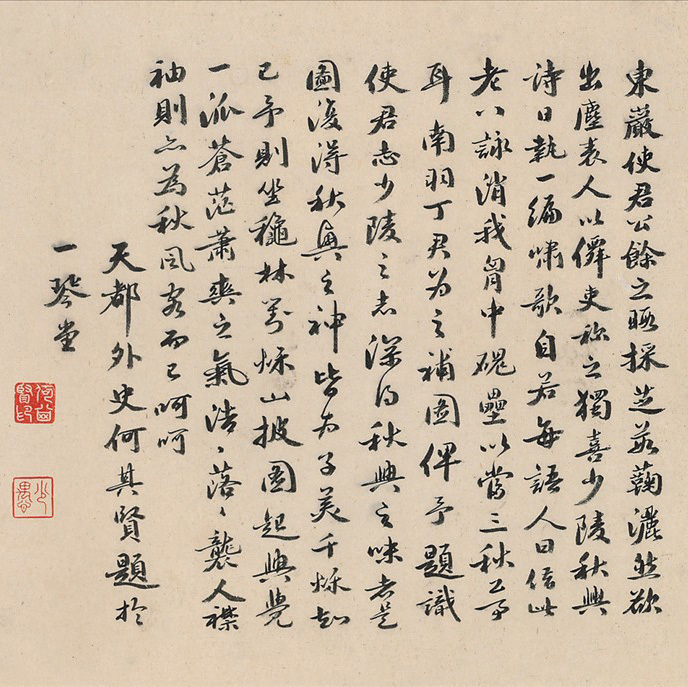 東巖使君公餘之暇採芝茹蘜灑然欲
出塵表人以僊吏称之獨喜少陵秋興
詩日執一編嘯歌自若每語人曰信此
老八詠消我胷中磈壘以當三秋工部
耳南羽丁君为之補圖俾予題識
使君志少陵之志深得秋興之味者是
圖復得秋興之神皆为子美千烁知
已予則坐穐林罗烁山披圖起興覺
一派蒼茫蕭爽之氣浩、落、襲人襟
袖則亦為秋風客而已呵呵
天都外史何其賢題於
一琴堂